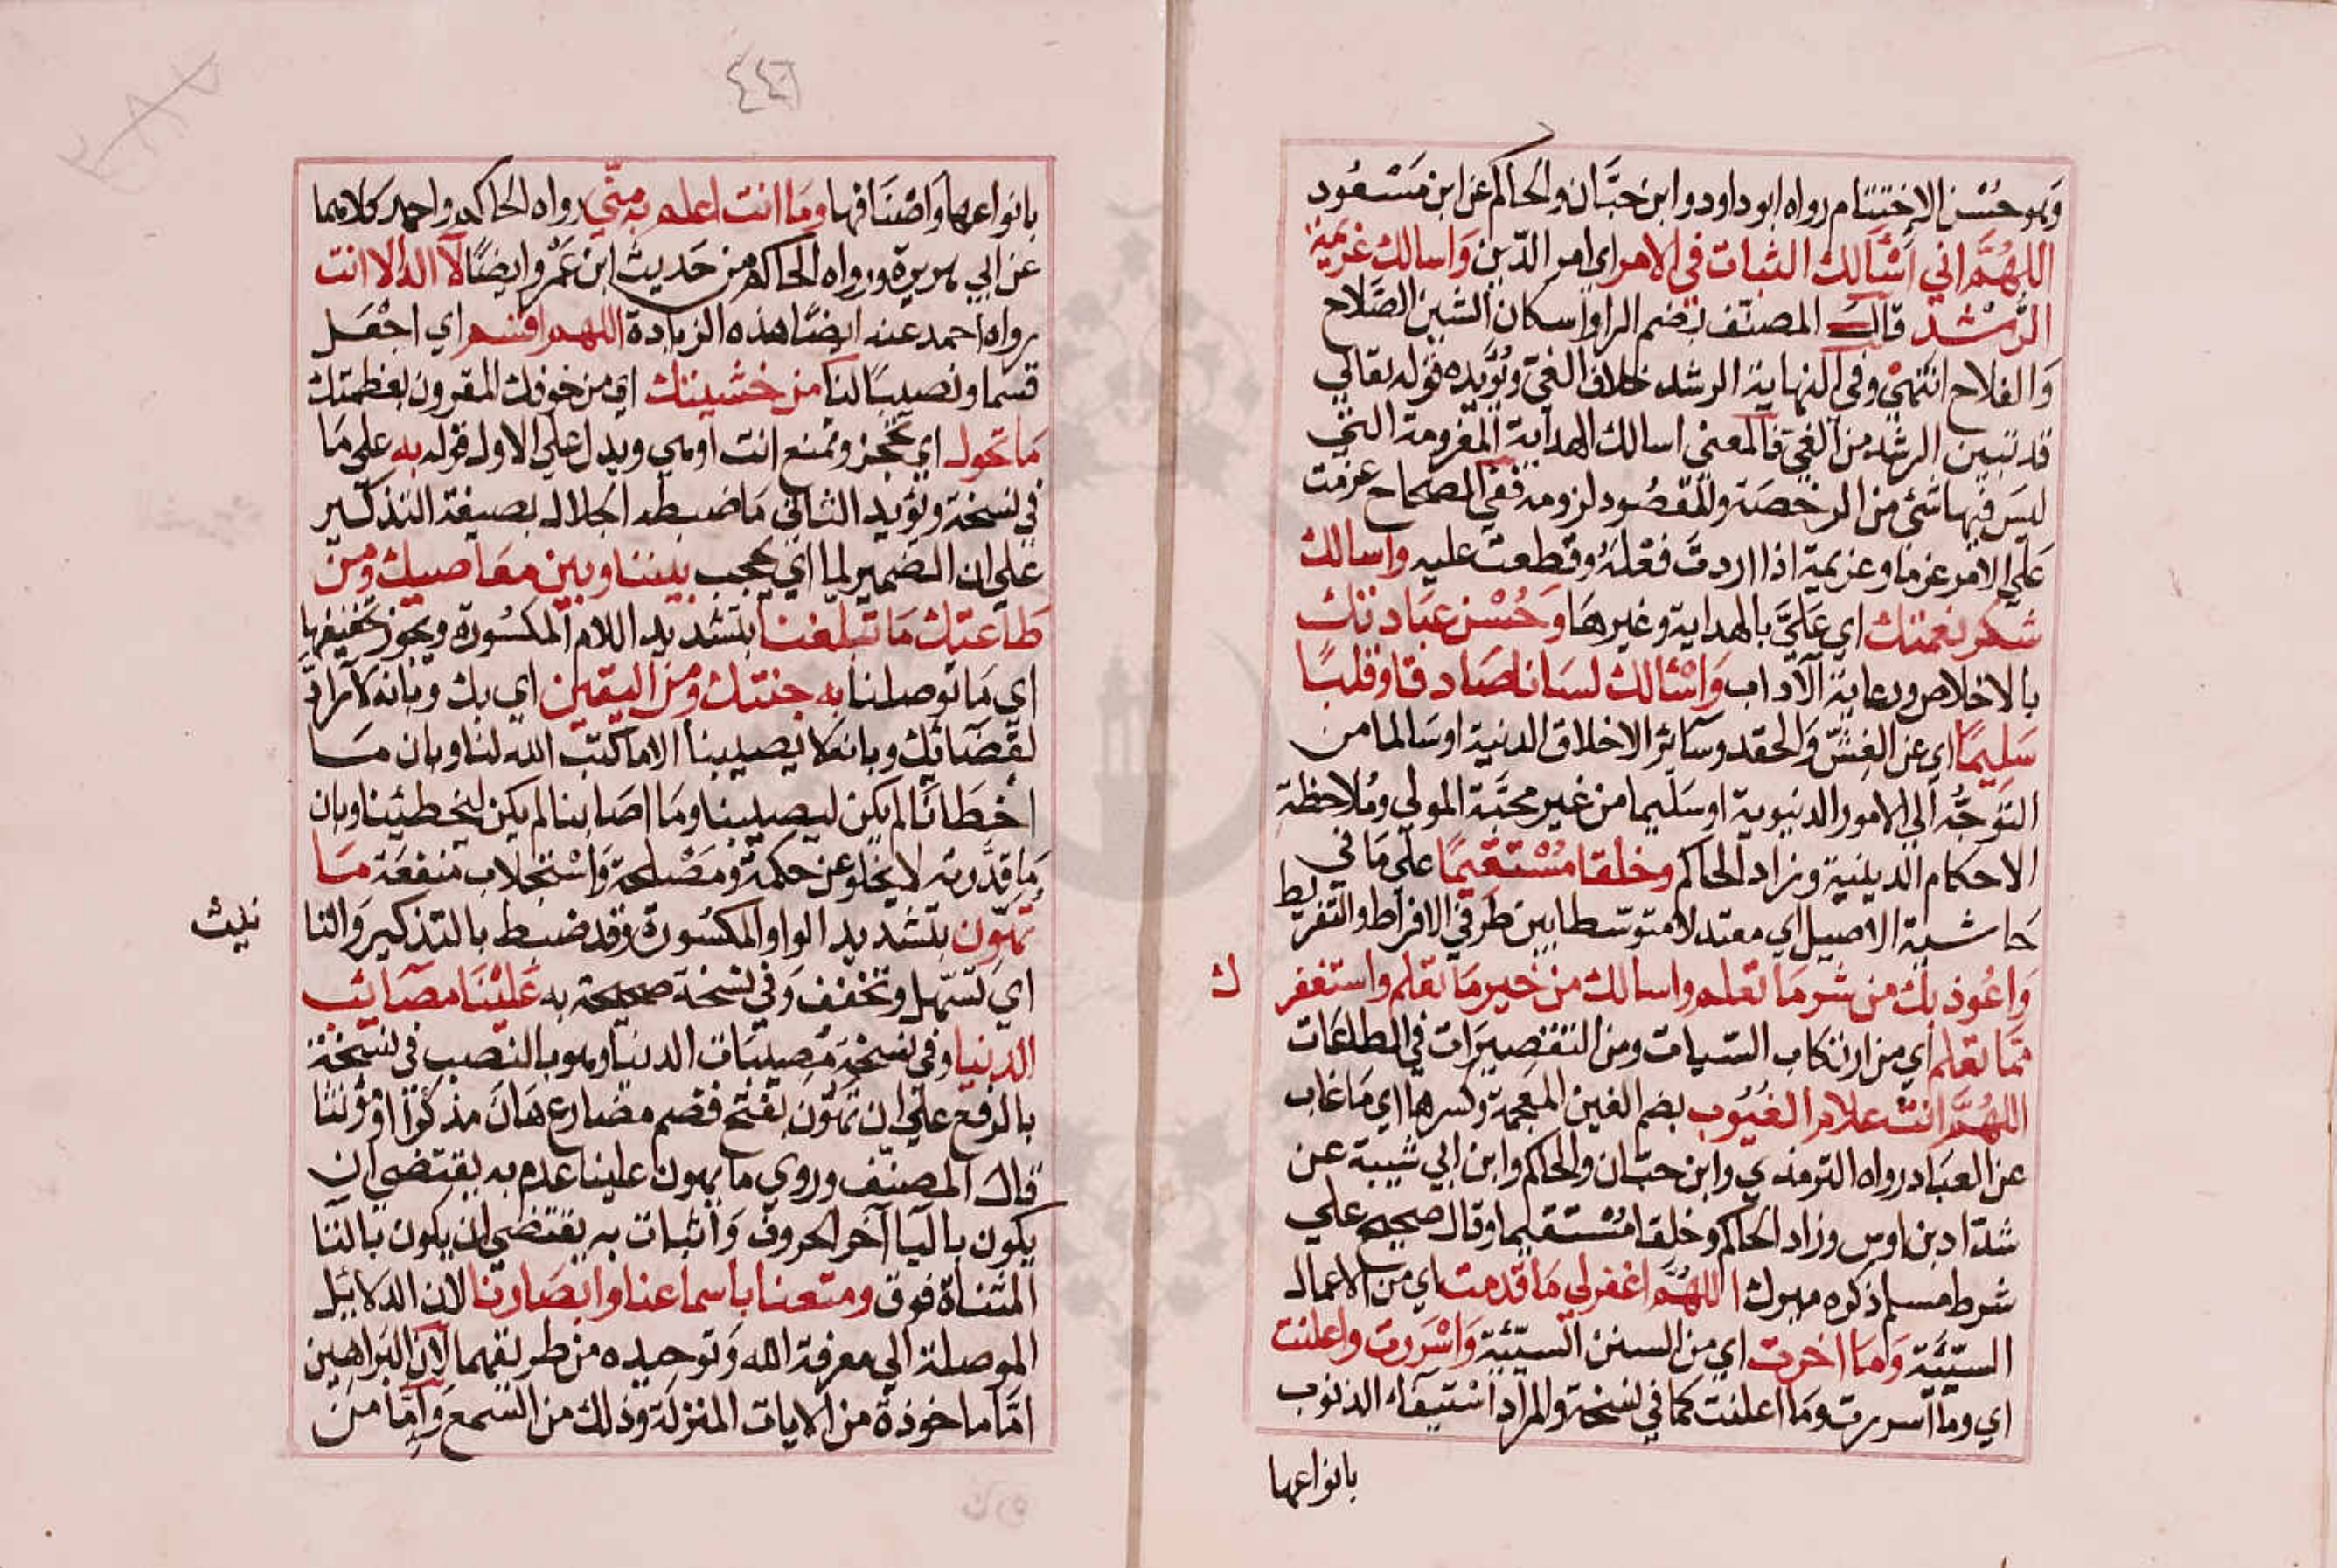 وهو حُسْن الاختتام رواه ابو داود وابن حبَّان والحاكم عن ابن مَسْعُود
اللهُمَّ اني أسْألك الثبات في الامر اي امر الدّين وَاسالك عزيمة
الرُّشْد قال المصنّف بضم الراو اسكان الشين الصَّلاح
وَالفلاح انتهيٰ وفي النهاية الرشد خلاف الغيّ ويُؤَيّده قوله تعالي
قد تبين الرشد من الغيّ فالمعني اسالك الهداية المعزومة التي
ليسَ فيها شئ من الرخصَة وللقصُود لزومه ففي الصحاح عزمت
عَلي الامر عزما وعزيمة اذا اردتَ فعْلهُ وقطعت عليه واسالك
شكر نعمتك اي عَليَّ بالهداية وغيرهَا وَحُسْن عبَادتك
بالاخلاص ورعاية الآداب وَاسْئالك لسَانا صَادقا وقلبًا
سَليمًا اي عن الغِشّ وَالحقد وسَآئر الاخلاق الدنية اوسَالما من
التوجُّه الي الامور الدنيوية اوسَليما من غير محبَّة المولي ومُلاحظة
الاحكام الدينية وزاد الحاكم وخلقا مُسْتقيمًا علي مَا في
حَاشية الاصيل اي معتدلا متوسّطا بين طرفي الافراط والتفريط
وَاعُوذ بك من شر مَا تعلم واسالك من خير مَا تعلم واستغفر
ك
ممَّا تعلم اي من ارتكاب السيات ومن التقصيرَات في الطاعَات
اللهُمَّ انتَ علام الغيُوب بضم الغين المعجمة وكسرها اي مَا غاب
عن العبَاد رواه الترمذي وابن حبّان والحاكم وابن ابي شيبة عن
شدّاد بن اوس وزاد الحاكم وخلقا مُسْتقيما وقال صحيح علي
شرط مسلم ذكره ميرك اللهُمَّ اغفرلي مَا قدمت اي من الاعمال
السيّئَة وَمَا اخرت اي من السنن السيّئة وَاسْرَرت واعلنت
اي وما اسررت ومَا اعلنت كما في نسخة والمراد استيفآء الذنوب
بانواعها
٤٤٦
بانواعها وَاصْنَافها وَمَا انت اعلم به منّي رواه الحاكم واحمد كلاهما
عن ابي هريرة ورواه الحاكم من حَديث ابن عَمْرو ايضًا لآ اله الا انت
رواه احمد عنه ايضًا هذه الزيادة اللهم اقسم اي اجْعَل
قسما ونصيبًا لنا من خشيتك اي من خوفك المقرون بعظمتك
مَا تحول اي تحجز وتمنع انت اوهي ويدل علي الاول قوله به علي مَا
في نسخة ويؤيد الثاني مَا ضبطه الجلال بصيغة التذكير
علي ان الضمير لما اي يحجب بيننا وبين معَاصيك ومن
طَاعتك مَا تبلغنا بتشديد اللام المكسُورة ويجوز تخفيفها
اي مَا توصلنا به جنتك ومن اليقين اي بك وبانه لا رادّ
لقضَآئك وبانه لا يصيبنا الا ما كتب الله لنا وبان مَا
اخطَانا لم يكن ليصيبنا ومَا اصَابنا لم يكن ليخطيئنا وبان
مَا قدَّرته لا يخلو عن حكمة ومَصْلحة وَاسْتجلاب منفعَة مَا
تهّون بتشديد الواو المكسُورة وقد ضبط بالتذكير وَالتا
نيث
اي تسّهل وتخفف وَفي نسخة صحيحة به عَليْنَا مصَآئب
الدنيا وفي نسخة مُصيبَات الدنيا وهو بالنصب في نسخة
بالرفع علي ان تَهُون بفتح فضم مضارع هَانَ مذكرًا اومؤنثا
قال المصنّف وروي ما يهون علينا عدم به يقتضي ان
يكون باليا آخر الحروف وَاثبات به يقتضي ان يكون بالتا
المثناة فوق ومتعنا باسماعنا وابصَارنا لان الدلائل
الموصلة الي معرفة الله وَتوحيده من طريقهما لان البَراهين
امَّا ماخوذة من الايات المنزلة وذلك من السمع وَامّا من